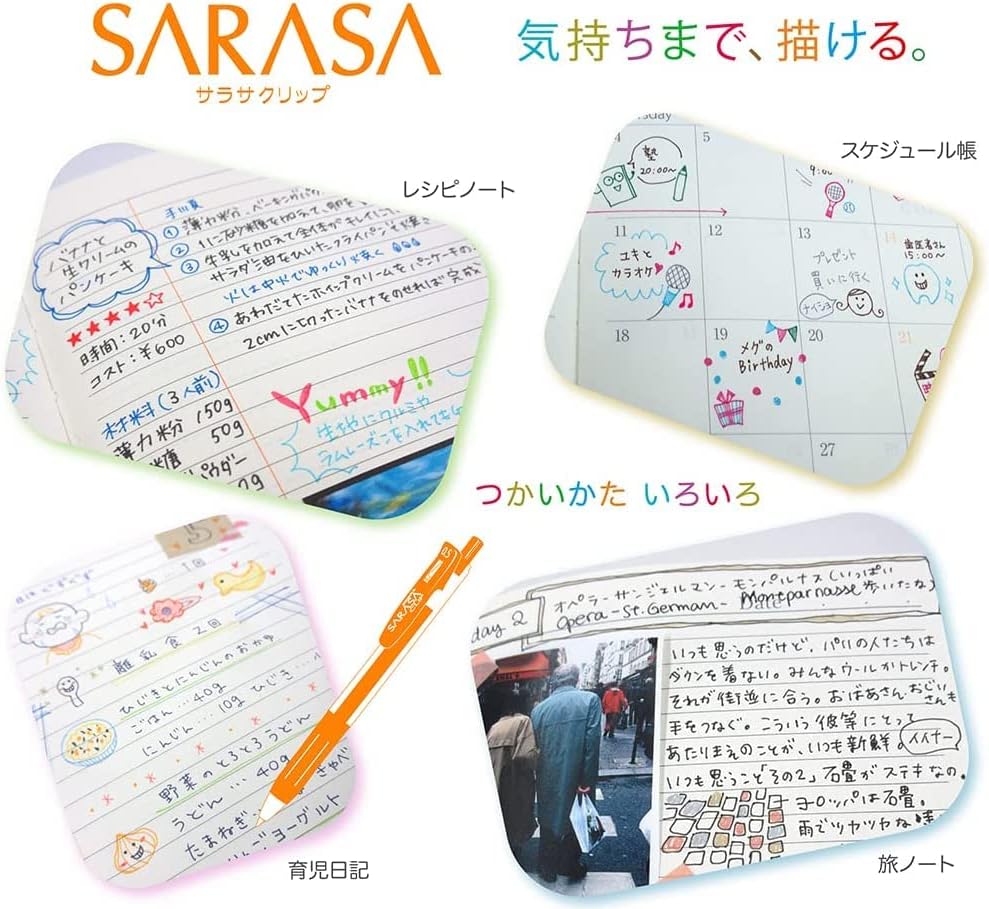 SARASA
サラサクリップ
気持ちまで、描ける。
レシピノート
バナナと
生クリームの
パンケーキ
★★★★☆
時間:20分
コスト:¥600
材料(3人前)
薄力粉 150g
50g
パウダー
手順
① 薄力粉、ベーキングパ
② 1に砂糖を加えて、卵を
③ 牛乳を加えて全体がキレイに
サラダ油をひいたフライパンで焼き
火は中火でゆっくり焼く
④ あわだてたホイップクリームをパンケーキの
2cmに切ったバナナをのせれば完成
Yummy!!
生地にクルミや
ラムレーズンを入れても
スケジュール帳
sday
4
塾
20:00~
5
9:00~
11
ユキと
カラオケ
12
13
プレゼント
買いに行く
ナイショ
14
歯医者さん
15:00~
18
19
メグの
Birthday
20
21
27
つかいかた いろいろ
15
1回
離乳食 2回
ひじきとにんじんのおかゆ
ごはん…40g ひじき
にんじん…10g
野菜のとろとろうどん
うどん…40g
たまねぎ
ヨーグルト
SARASA
0.5
育児日記
day 2
オペラーサンジェルマンーモンパルナス(いっぱい
歩いたな)
Opera-St.German- Montparnasse
Date
いつも思うのだけど、パリの人たちは
ダウンを着ない。みんなウールかトレンチ。
それが街並に合う。おばあさん、おじいさんも
手をつなぐ。こういう彼等にとって
あたりまえのことが、いつも新鮮。
いつも思うこと「その2」石畳がステキなの。
ヨーロッパは石畳。
雨でツヤツヤな
旅ノート